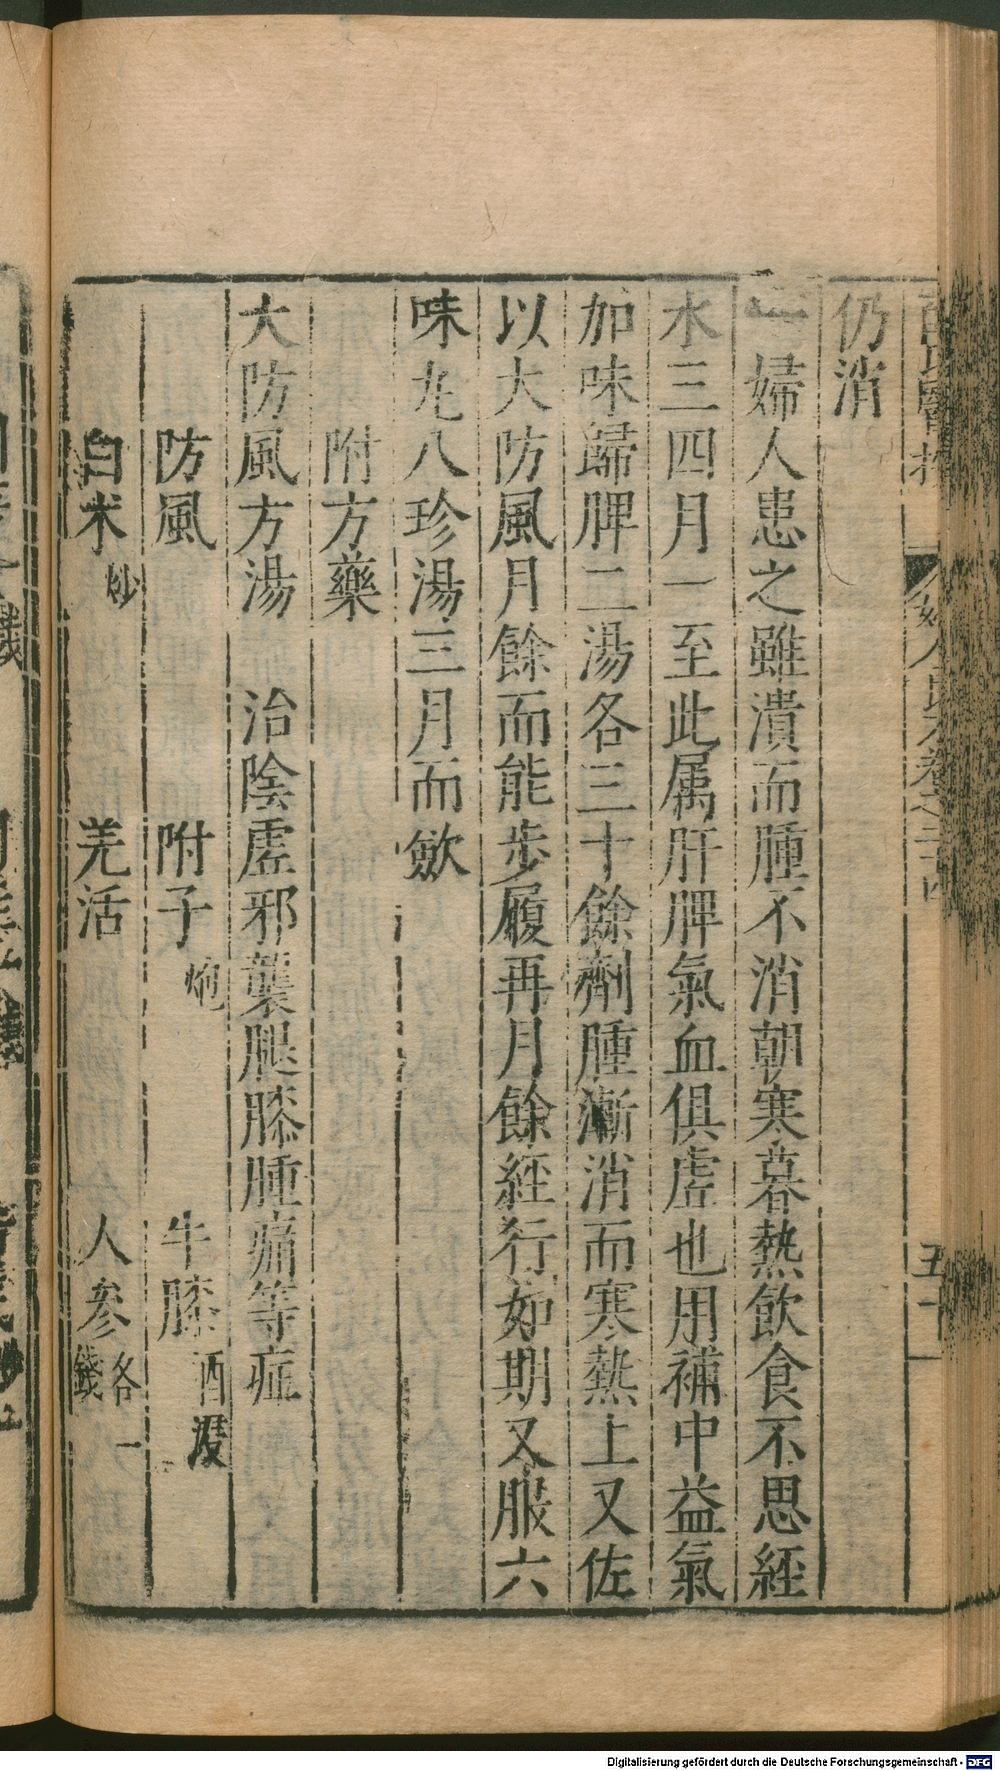 仍消
一婦人患之雖潰而腫不消朝寒暮熱飲食不思經
水三四月一至此属肝脾氣血俱虗也用補中益氣
加味歸脾二湯各三十餘劑腫漸消而寒熱止又佐
以大防風月餘而能步履再月餘經行如期又服六
味丸八珍湯三月而斂
附方藥
大防風方湯　治陰虗邪襲腿膝腫痛等症
防風　附子炮　牛膝酒浸
白术炒　羌活　人參各一錢
Digitalisierung gefördert durch die Deutsche Forschungsgemeinschaft - DFG